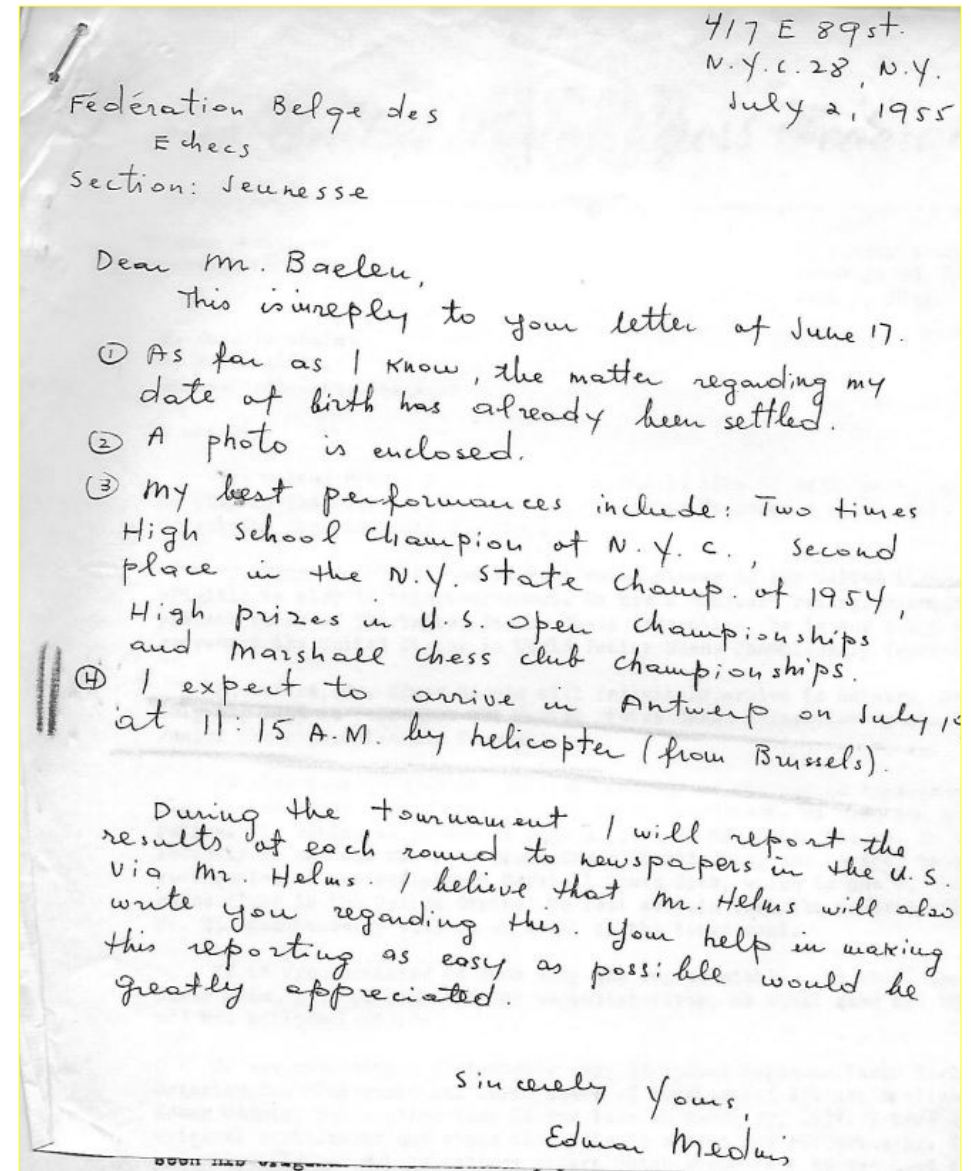 417 E 89 st.
N.Y.C. 28, N.Y.
July 2, 1955
Fédération Belge des
Echecs
Section: Jeunesse
Dear Mr. Baelen,
This is in reply to your letter of June 17.
① As far as I know, the matter regarding my
date of birth has already been settled.
② A photo is enclosed.
③ My best performances include: Two times
High School Champion of N.Y.C., Second
place in the N.Y. State Champ. of 1954,
High prizes in U.S. Open Championships
and Marshall Chess Club Championships.
④ I expect to arrive in Antwerp on July
at 11:15 A.M. by helicopter (from Brussels).
During the tournament I will report the
results of each round to newspapers in the U.S.
via Mr. Helms. I believe that Mr. Helms will also
write you regarding this. Your help in making
this reporting as easy as possible would be
greatly appreciated.
Sincerely Your,
Edmar Mednis